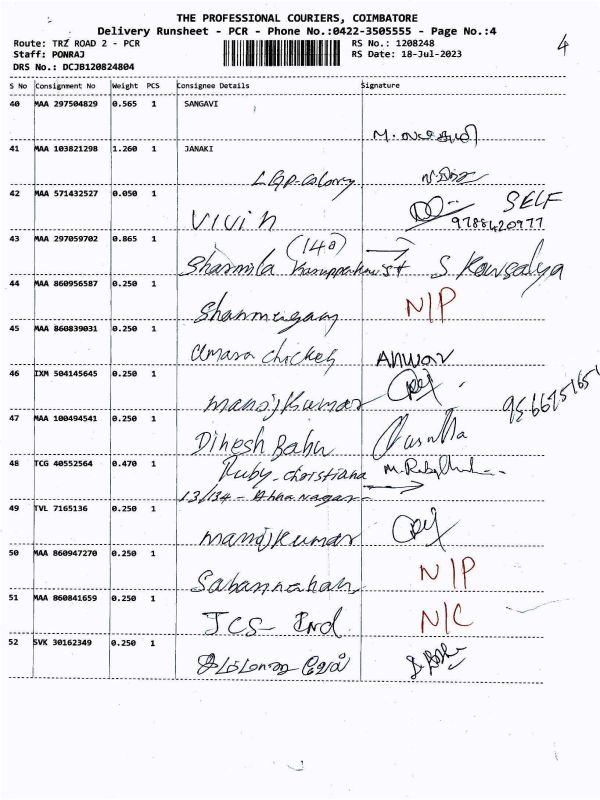 THE PROFESSIONAL COURIERS, COIMBATORE
Delivery Runsheet - PCR - Phone No.:0422-3505555 - Page No.:4
Route: TRZ ROAD 2 - PCR RS No.: 1208248 4
Staff: PONRAJ RS Date: 18-Jul-2023
DRS No.: DCJB120824804
S No Consignment No Weight PCS Consignee Details Signature
40 MAA 297504829 0.565 1 SANGAVI
41 MAA 103821298 1.260 1 JANAKI
LGP-Colony
42 MAA 571432527 0.050 1 SELF
Vivin 9788420977
43 MAA 297059702 0.865 1 (140)
Sharmila St S. Kowsalya
44 MAA 860956587 0.250 1
Shanmugam N/P
45 MAA 860839031 0.250 1
Amara chicken Anwar
46 IXM 504145645 0.250 1
Manoj Kumar
47 MAA 100494541 0.250 1
Dinesh Babu
48 TCG 40552564 0.470 1
Ruby-Christiana
13/134 - Anna Nagar
49 TVL 7165136 0.250 1
Manoj Kumar
50 MAA 860947270 0.250 1
N/P
51 MAA 860841659 0.250 1
JCS- Ind N/C
52 SVK 30162349 0.250 1